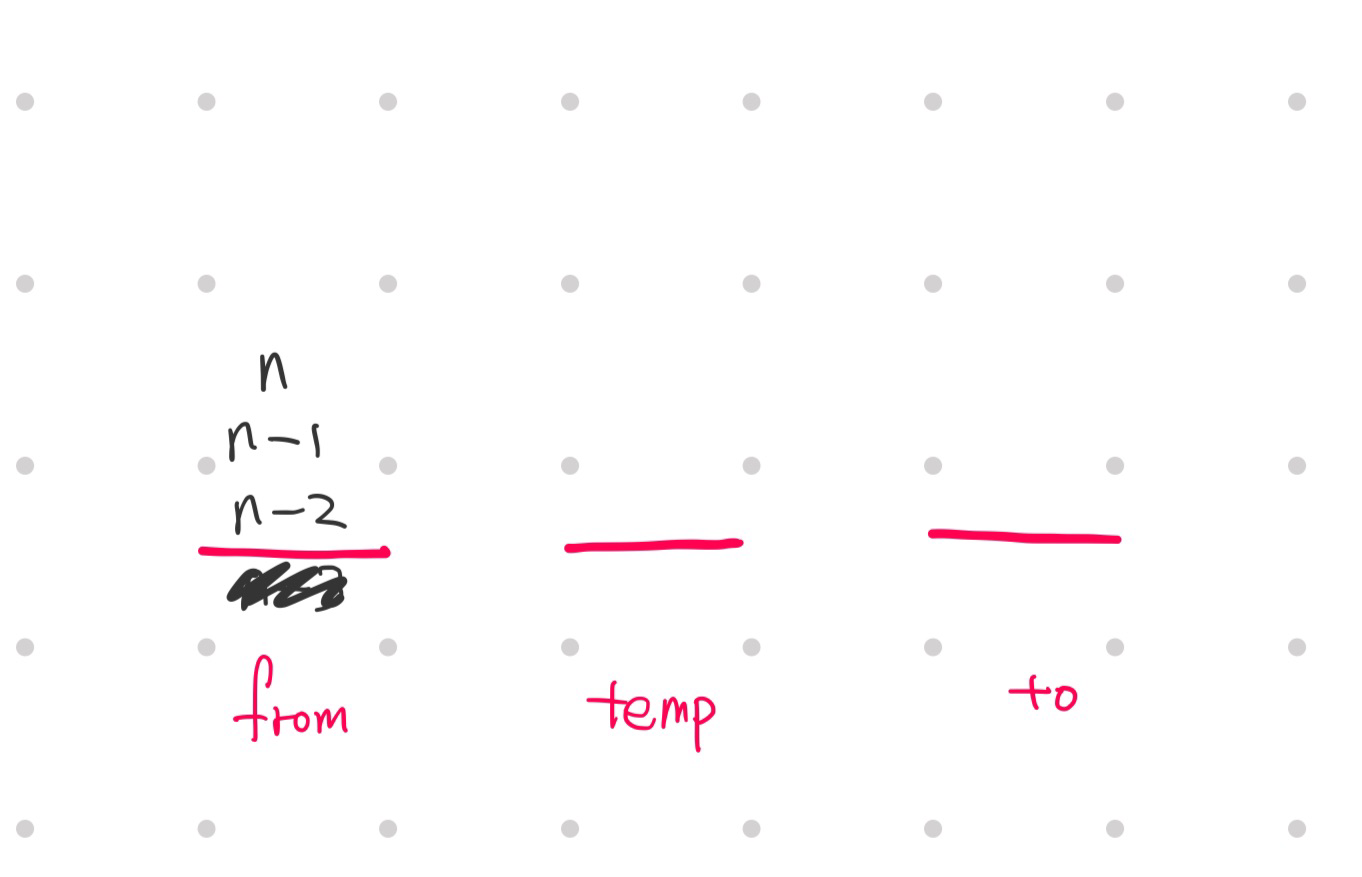 n
n-1
n-2
from
temp
to